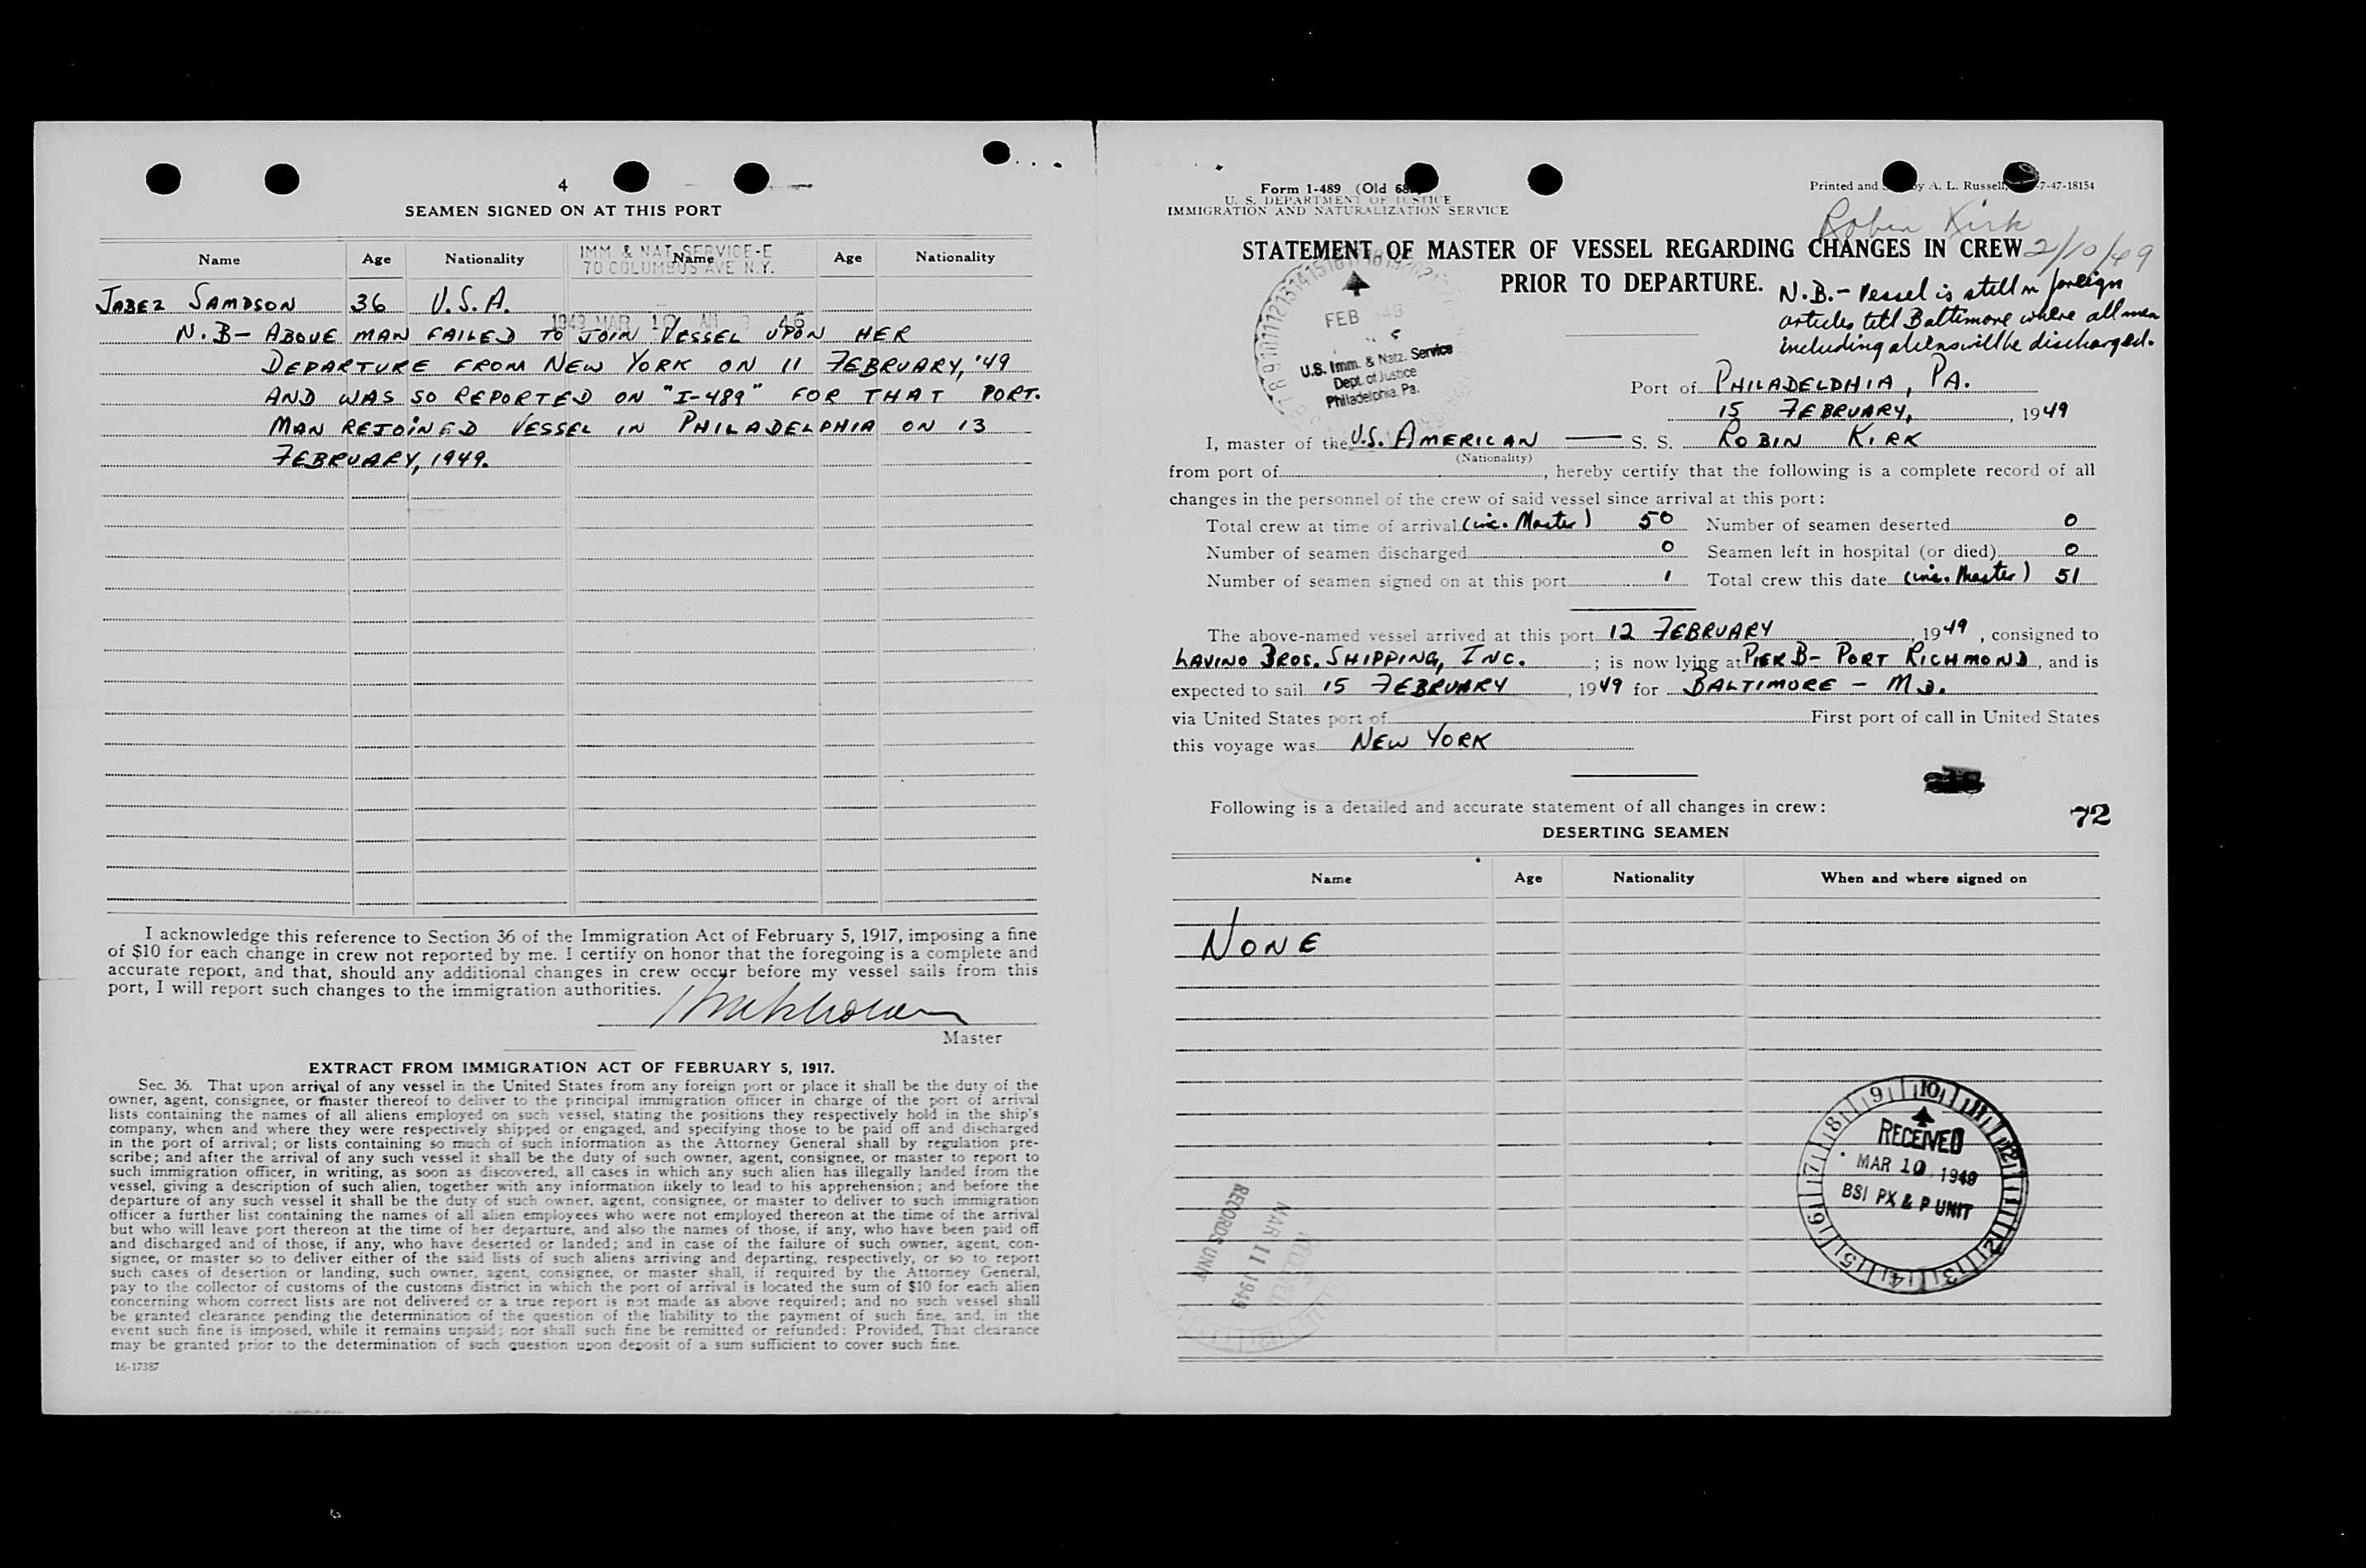 4
SEAMEN SIGNED ON AT THIS PORT
Name Age Nationality Name Age Nationality
IMM. & NAT. SERVICE-E
70 COLUMBUS AVE N.Y.
JABEZ SAMPSON 36 U.S.A.
1949 MAR 10 AM 46
N.B- ABOVE MAN FAILED TO JOIN VESSEL UPON HER
DEPARTURE FROM NEW YORK ON 11 FEBRUARY, '49
AND WAS SO REPORTED ON "I-489" FOR THAT PORT.
MAN REJOINED VESSEL IN PHILADELPHIA ON 13
FEBRUARY, 1949.
I acknowledge this reference to Section 36 of the Immigration Act of February 5, 1917, imposing a fine
of $10 for each change in crew not reported by me. I certify on honor that the foregoing is a complete and
accurate report, and that, should any additional changes in crew occur before my vessel sails from this
port, I will report such changes to the immigration authorities.
Master
EXTRACT FROM IMMIGRATION ACT OF FEBRUARY 5, 1917.
Sec. 36. That upon arrival of any vessel in the United States from any foreign port or place it shall be the duty of the
owner, agent, consignee, or master thereof to deliver to the principal immigration officer in charge of the port of arrival
lists containing the names of all aliens employed on such vessel, stating the positions they respectively hold in the ship's
company, when and where they were respectively shipped or engaged, and specifying those to be paid off and discharged
in the port of arrival; or lists containing so much of such information as the Attorney General shall by regulation pre-
scribe; and after the arrival of any such vessel it shall be the duty of such owner, agent, consignee, or master to report to
such immigration officer, in writing, as soon as discovered, all cases in which any such alien has illegally landed from the
vessel, giving a description of such alien, together with any information likely to lead to his apprehension; and before the
departure of any such vessel it shall be the duty of such owner, agent, consignee, or master to deliver to such immigration
officer a further list containing the names of all alien employees who were not employed thereon at the time of the arrival
but who will leave port thereon at the time of her departure, and also the names of those, if any, who have been paid off
and discharged and of those, if any, who have deserted or landed; and in case of the failure of such owner, agent, con-
signee, or master so to deliver either of the said lists of such aliens arriving and departing, respectively, or so to report
such cases of desertion or landing, such owner, agent, consignee, or master shall, if required by the Attorney General,
pay to the collector of customs of the customs district in which the port of arrival is located the sum of $10 for each alien
concerning whom correct lists are not delivered or a true report is not made as above required; and no such vessel shall
be granted clearance pending the determination of the question of the liability to the payment of such fine, and, in the
event such fine is imposed, while it remains unpaid; nor shall such fine be remitted or refunded: Provided, That clearance
may be granted prior to the determination of such question upon deposit of a sum sufficient to cover such fine.
16-17387
Form 1-489 (Old 68
U. S. DEPARTMENT OF JUSTICE
IMMIGRATION AND NATURALIZATION SERVICE
Printed and by A. L. Russell, 7-47-18154
Robin Kirk
2/10/49
STATEMENT OF MASTER OF VESSEL REGARDING CHANGES IN CREW
PRIOR TO DEPARTURE.
N.B.- Vessel is still on foreign
articles till Baltimore where all men
including aliens will be discharged.
FEB 49
U.S. Imm. & Natz. Service
Dept. of Justice
Philadelphia, Pa.
Port of PHILADELPHIA, PA.
15 FEBRUARY, 1949
I, master of the U.S. AMERICAN S. S. ROBIN KIRK
(Nationality)
from port of , hereby certify that the following is a complete record of all
changes in the personnel of the crew of said vessel since arrival at this port:
Total crew at time of arrival (inc. Master) 50 Number of seamen deserted 0
Number of seamen discharged 0 Seamen left in hospital (or died) 0
Number of seamen signed on at this port 1 Total crew this date (inc. Master) 51
The above-named vessel arrived at this port 12 FEBRUARY , 1949 , consigned to
LAVINO BROS. SHIPPING, INC. ; is now lying at PIER B- PORT RICHMOND, and is
expected to sail 15 FEBRUARY , 1949 for BALTIMORE - MD.
via United States port of First port of call in United States
this voyage was NEW YORK
Following is a detailed and accurate statement of all changes in crew:
72
DESERTING SEAMEN
Name Age Nationality When and where signed on
NONE
RECEIVED
MAR 10 1949
BSI PX & P UNIT
RECEIVED
MAR 11 1949
RECORDS UNIT